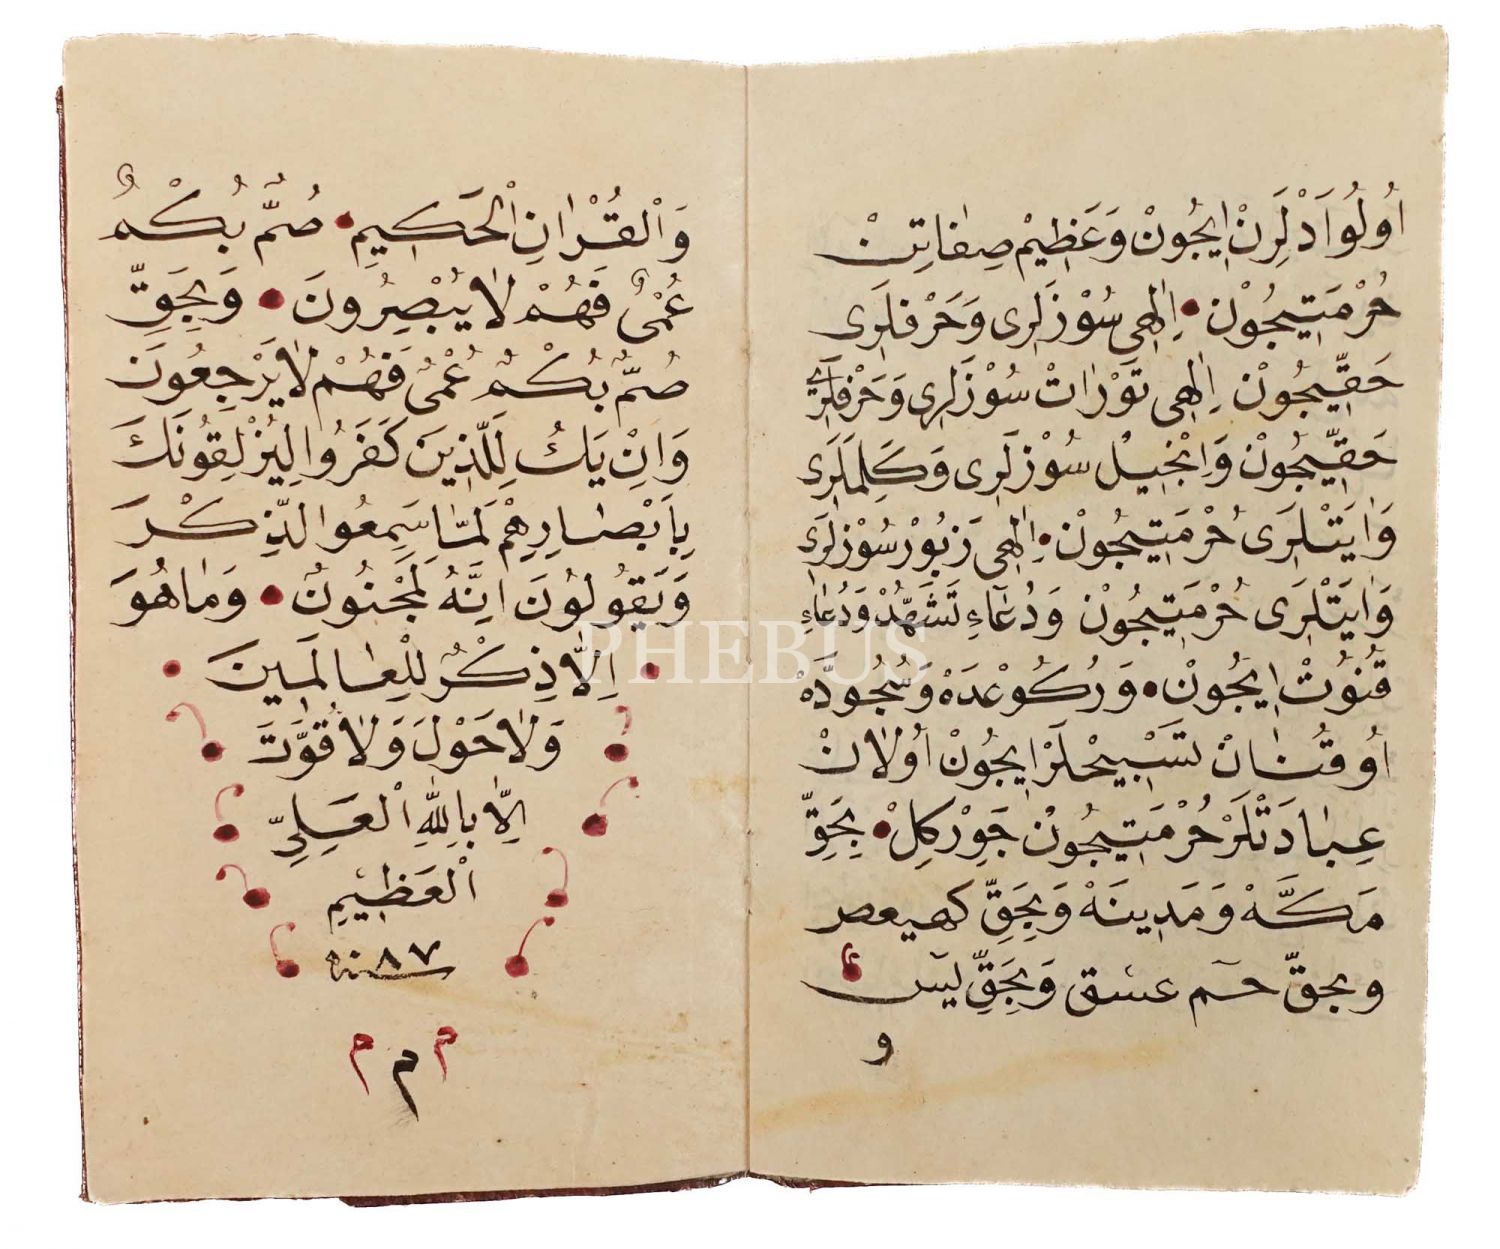 اُولُو اَدْلَرِنْ اِيچُونْ وَعَظِيمْ صِفَاتِنْ
حُرْمَتِيچُونْ اِلٰهِى سُوْزْلَرِى وَحَرْفلَرِى
حَقِّيچُونْ اِلٰهِى تَوْرَاتْ سُوْزْلَرِى وَحَرْفلَرِى
حَقِّيچُونْ وَاِنْجِيلْ سُوْزْلَرِى وَكَلِمَلَرِى
وَاٰيَتْلَرِى حُرْمَتِيچُونْ اِلٰهِى زَبُورْ سُوْزْلَرِى
وَاٰيَتْلَرِى حُرْمَتِيچُونْ وَدُعَاءِ تَشَهُّدْ وَدُعَاءِ
قُنُوتْ اِيچُونْ وَرُكُوعْدَهْ وَسُجُودَهْ
اُوقُنَانْ تَسْبِيحْلَرْ اِيچُونْ اُولَانْ
عِبَادَتْلَرْ حُرْمَتِيچُونْ جَوِرْكِلْ بِحَقِّ
مَكَّهْ وَمَدِينَهْ وَبِحَقِّ كهيعص
وبحقّ حٓم عٓسٓق وَبِحَقِّ يٰسٓ
و
وَالْقُرْاٰنِ الْحَكِيمِ صُمٌّ بُكْمٌ
عُمْىٌ فَهُمْ لَا يُبْصِرُونَ وَبِحَقِّ
صُمٌّ بُكْمٌ عُمْىٌ فَهُمْ لَا يَرْجِعُونَ
وَاِنْ يَكُ لِلَّذِينَ كَفَرُوا لَيُزْلِقُونَكَ
بِاَبْصَارِهِمْ لَمَّا سَمِعُوا الذِّكْرَ
وَيَقُولُونَ اِنَّهُ لَمَجْنُونٌ وَمَا هُوَ
اِلَّا ذِكْرٌ لِلْعَالَمِينَ
وَلَا حَوْلَ وَلَا قُوَّتَ
اِلَّا بِاللّٰهِ الْعَلِىِّ
الْعَظِيمِ
سنه ٨٧
م م م
PHEBUS